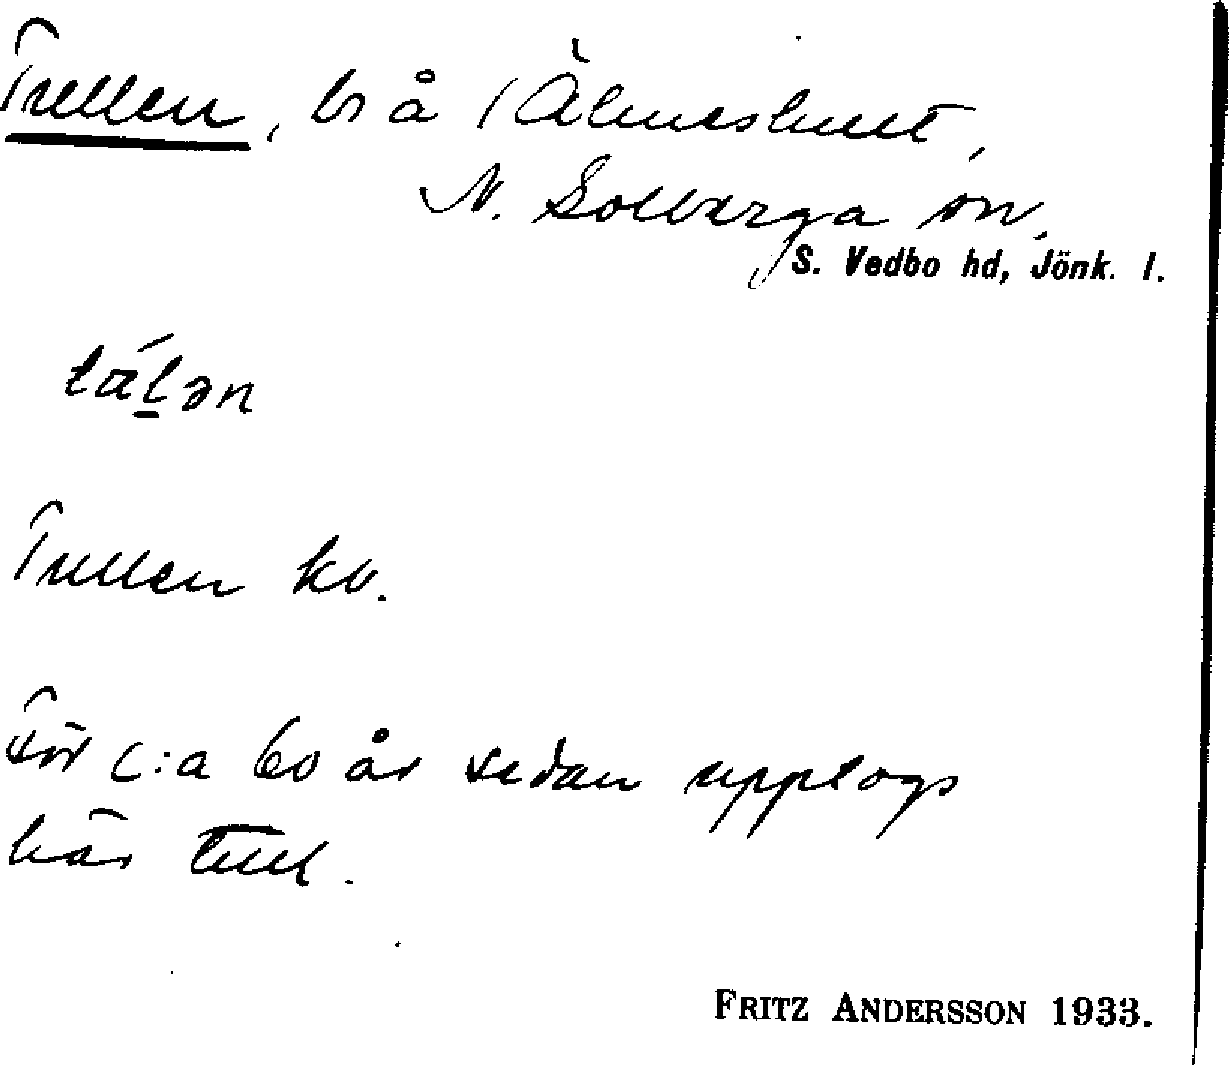 Tullen, å Älmeshult,
N. Solberga sn,
S. Vedbo hd, Jönk. l.
Tullen kv.
För c:a 60 år sedan upptogs
här tull.
FRITZ ANDERSSON 1933.